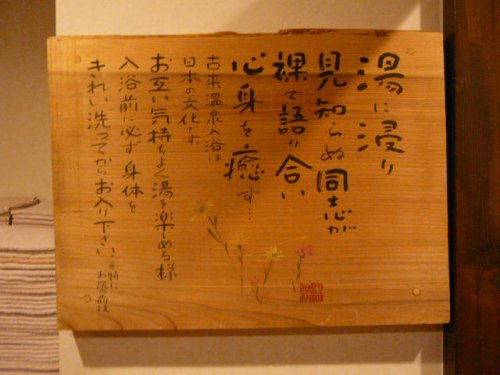 湯に浸り
見知らぬ同志が
裸で語り合い
心身を癒す…
古来温泉入浴は
日本の文化です
お互い気持ちよく湯を楽しめる様
入浴前に必ず身体を
きれい洗ってからお入り下さい
特に
お尻前後